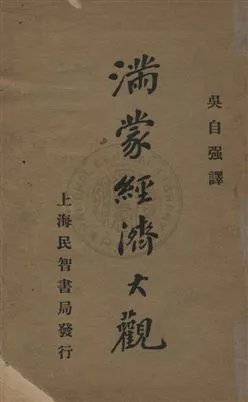 吳自强譯
滿蒙經濟大觀
上海民智書局發行